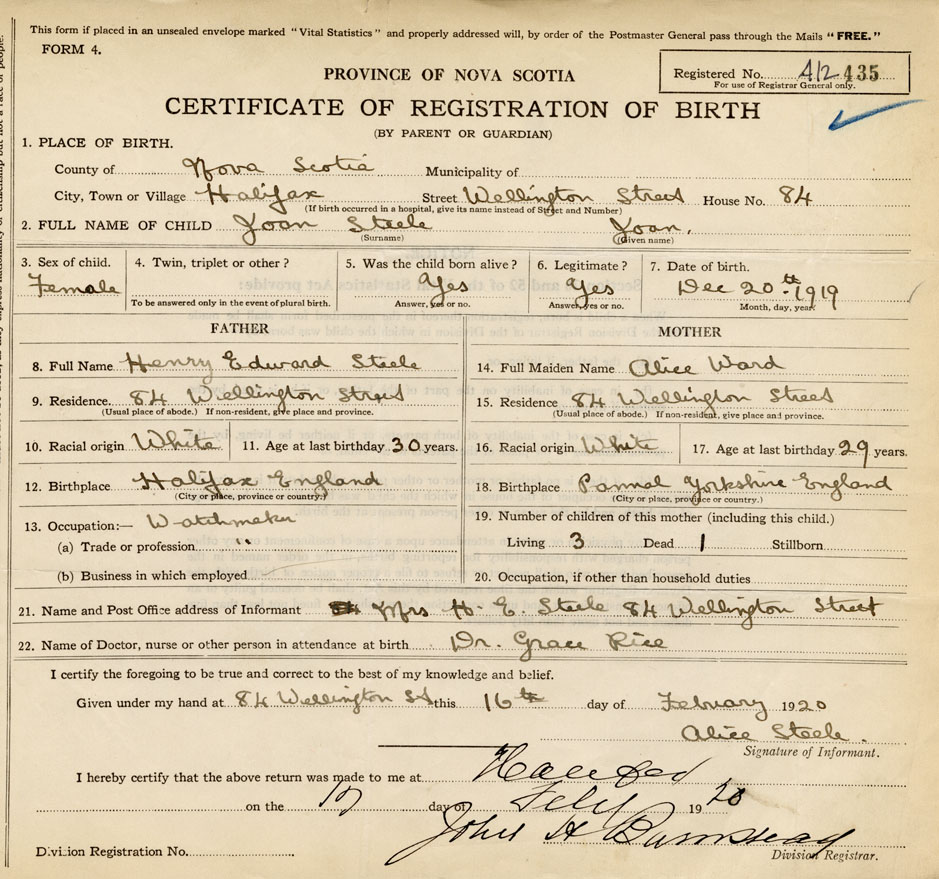 This form if placed in an unsealed envelope marked "Vital Statistics" and properly addressed will, by order of the Postmaster General pass through the Mails "FREE."
FORM 4.
Registered No. 412 435
For use of Registrar General only.
PROVINCE OF NOVA SCOTIA
CERTIFICATE OF REGISTRATION OF BIRTH
(BY PARENT OR GUARDIAN)
1. PLACE OF BIRTH.
County of Nova Scotia Municipality of
City, Town or Village Halifax Street Wellington Street House No. 84
(If birth occurred in a hospital, give its name instead of Street and Number)
2. FULL NAME OF CHILD Joan Steele Joan.
(Surname) (Given name)
3. Sex of child. 4. Twin, triplet or other ? 5. Was the child born alive ? 6. Legitimate ? 7. Date of birth.
Female Yes Yes Dec 20th 1919
To be answered only in the event of plural birth. Answer, yes or no. Answer, yes or no. Month, day, year.
FATHER
8. Full Name Henry Edward Steele
9. Residence. 84 Wellington Street
(Usual place of abode.) If non-resident, give place and province.
10. Racial origin White 11. Age at last birthday 30 years.
12. Birthplace Halifax England
(City or place, province or country.)
13. Occupation:— Watchmaker
(a) Trade or profession "
(b) Business in which employed
MOTHER
14. Full Maiden Name Alice Ward
15. Residence 84 Wellington Street
(Usual place of abode.) If non-resident, give place and province.
16. Racial origin White 17. Age at last birthday 29 years.
18. Birthplace Pannal Yorkshire England
(City or place, province or country.)
19. Number of children of this mother (including this child.)
Living 3 Dead 1 Stillborn
20. Occupation, if other than household duties
21. Name and Post Office address of Informant Mrs H. E. Steele 84 Wellington Street
22. Name of Doctor, nurse or other person in attendance at birth Dr. Grace Rice
I certify the foregoing to be true and correct to the best of my knowledge and belief.
Given under my hand at 84 Wellington St this 16th day of February 1920
Alice Steele.
Signature of Informant.
I hereby certify that the above return was made to me at Halifax
on the 17 day of Feby 1920
John H
Division Registration No. Division Registrar.